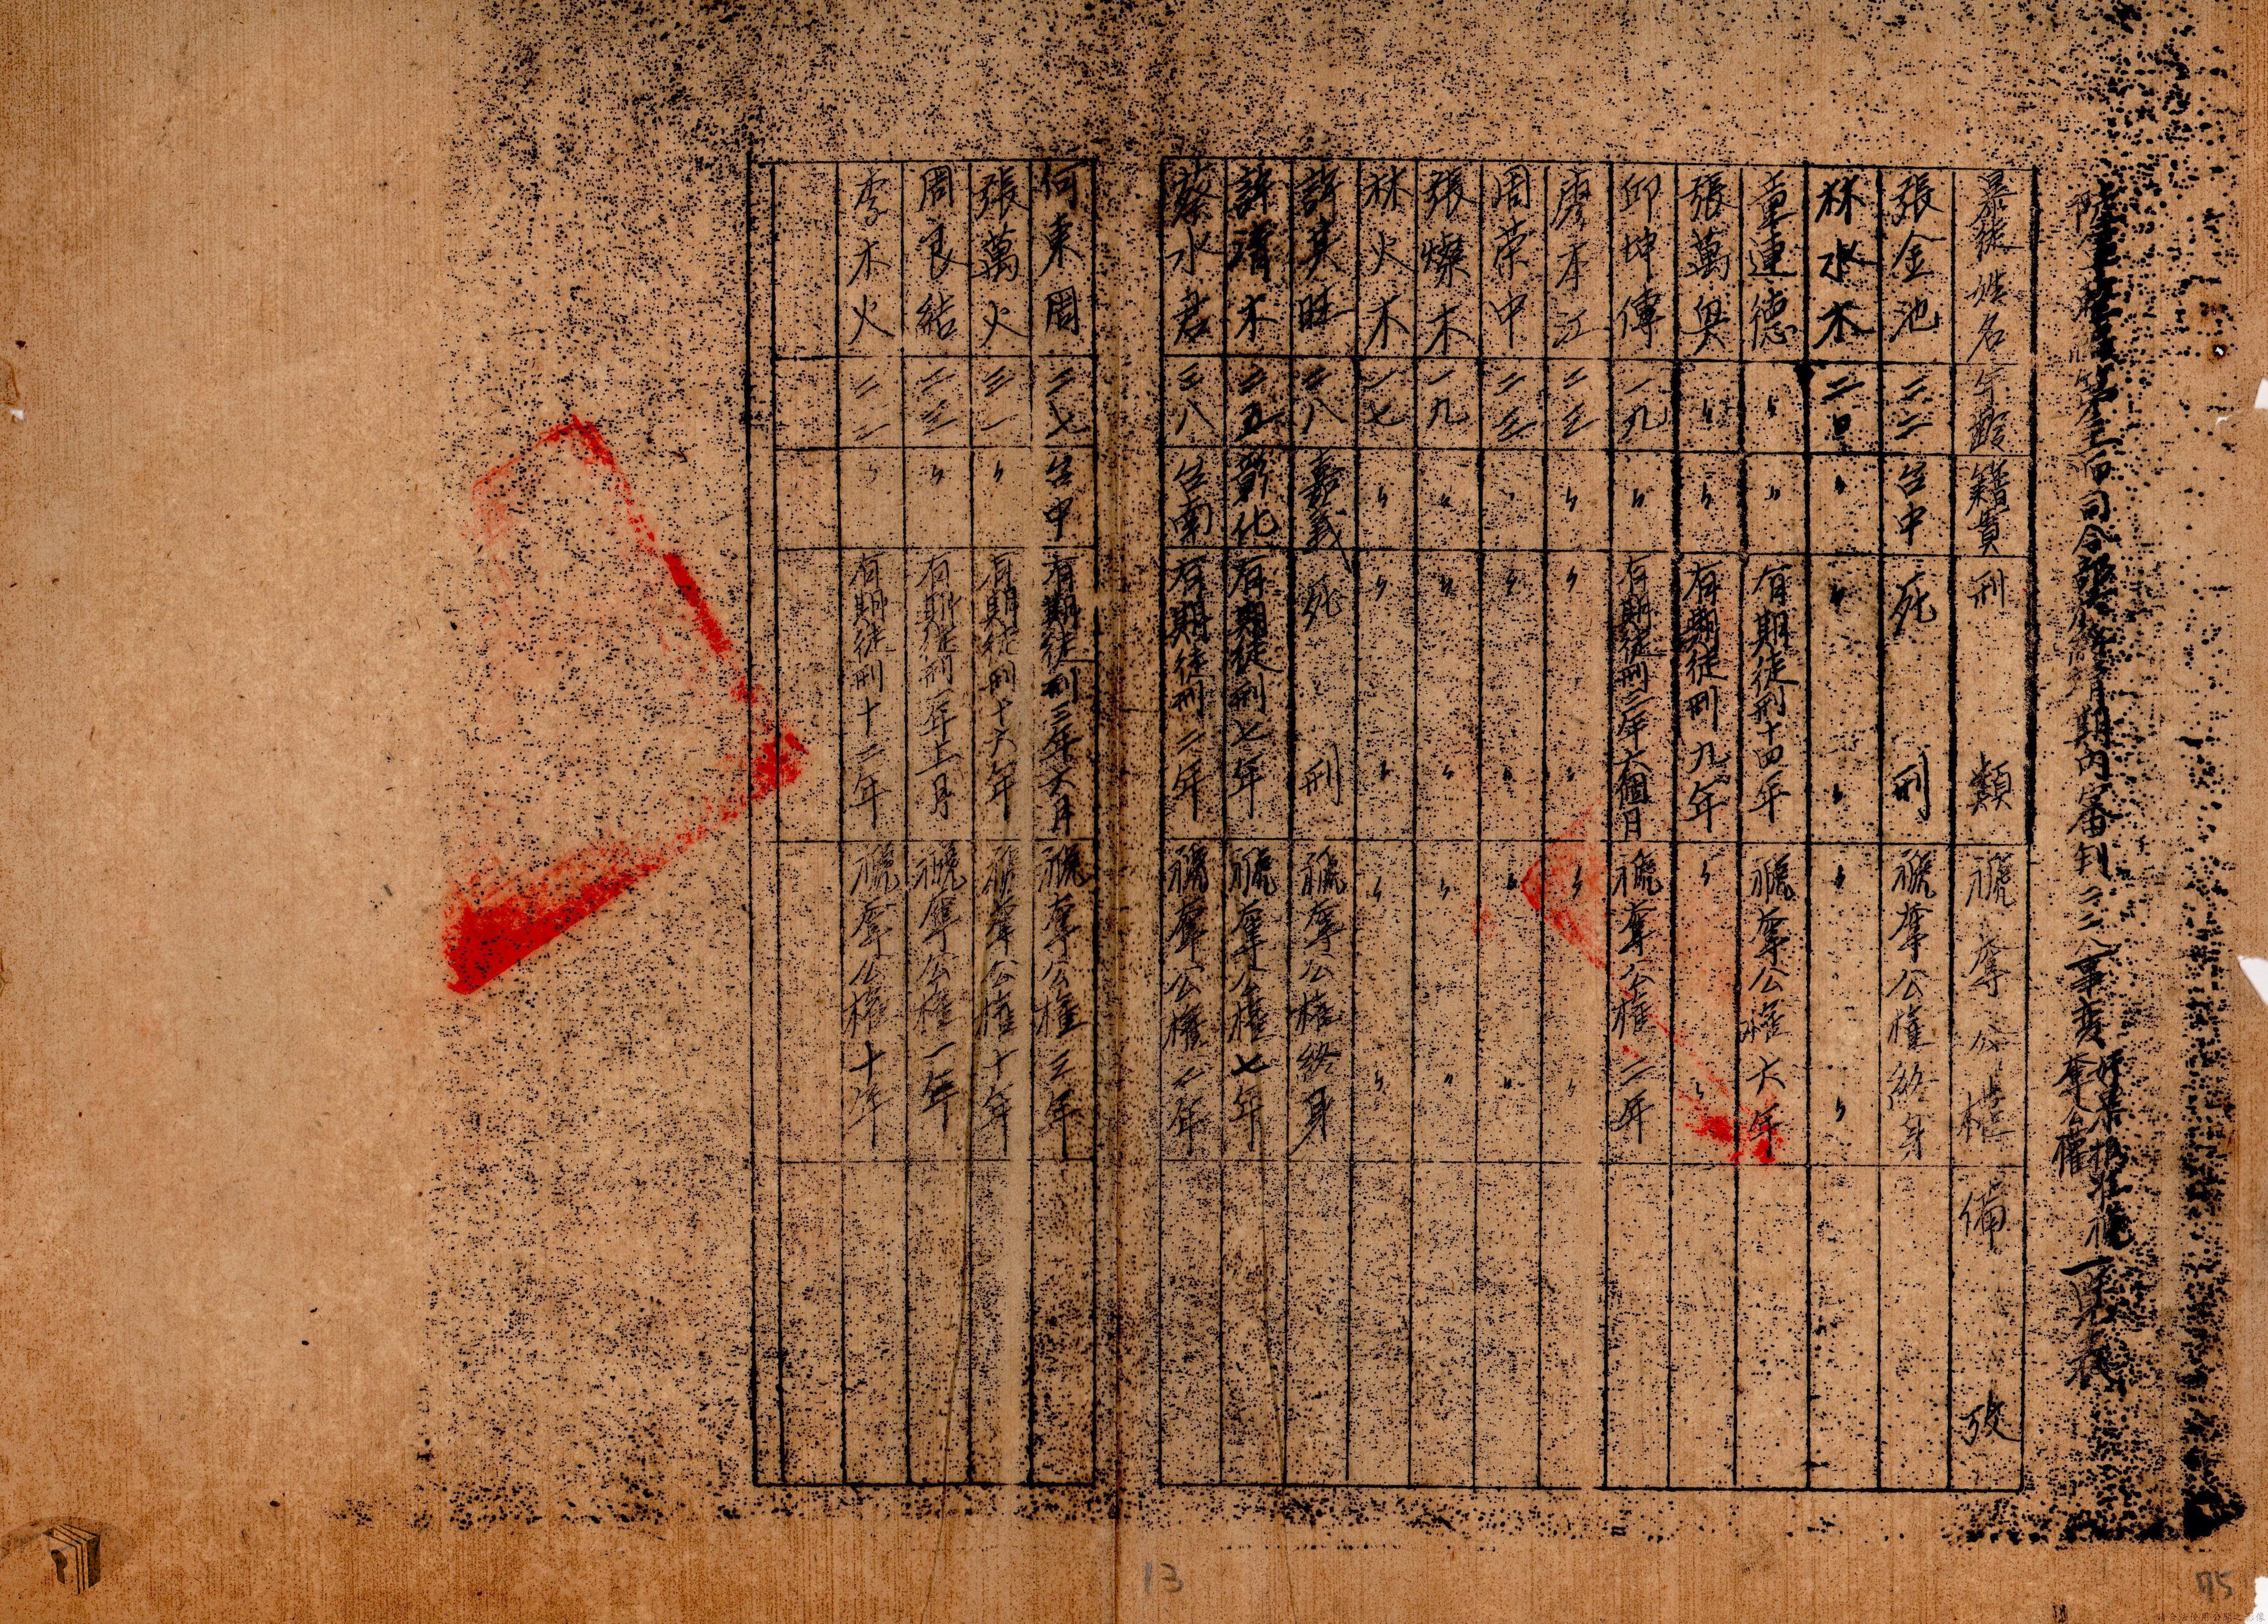 期內審判二二八事變奸暴
奪公權
一覽表
暴徒姓名 年齡 籍貫 刑類 褫奪公權 備攷
張金池 三二 台中 死刑 褫奪公權終身
林水木 二〇 〃 〃 〃 〃 〃
童連德 〃 〃 有期徒刑十四年 褫奪公權六年
張萬與 〃 〃 有期徒刑九年 〃 〃
邱坤傳 一九 〃 有期徒刑三年六個月 褫奪公權二年
廖本江 二三 〃 〃 〃 〃 〃
周荣中 二三 〃 〃 〃 〃 〃
張燦木 一九 〃 〃 〃 〃 〃
林火木 二七 〃 〃 〃 〃 〃
許其旺 二八 嘉義 死刑 褫奪公權終身
許清木 二五 彰化 有期徒刑七年 褫奪公權七年
蔡水君 三八 台南 有期徒刑二年 褫奪公權二年
何東周 二七 台中 有期徒刑三年六月 褫奪公權三年
張萬火 三一 〃 有期徒刑十六年 褫奪公權十年
周良結 二三 〃 有期徒刑一年 褫奪公權一年
李木火 二二 〃 有期徒刑十二年 褫奪公權十年
13
75